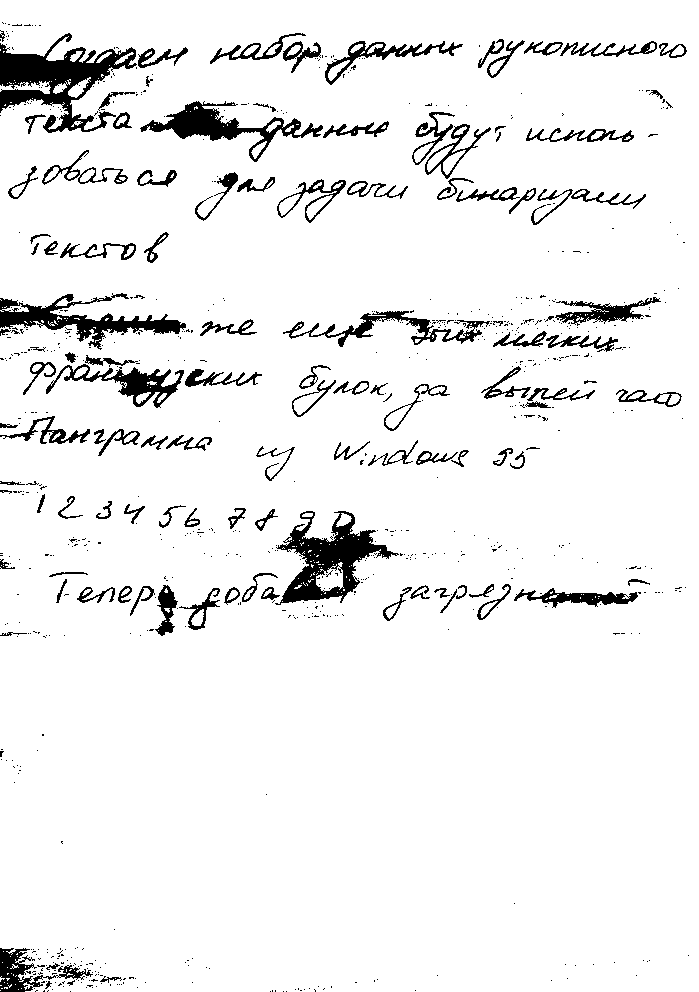 Создаем набор данных рукописного
текста данные будут исполь-
зоваться для задачи бинаризации
текстов
же еще этих мягких
французских булок, да выпей чаю
Панграмма из Windows 95
1 2 3 4 5 6 7 8 9 0
Теперь добавим загрязнений